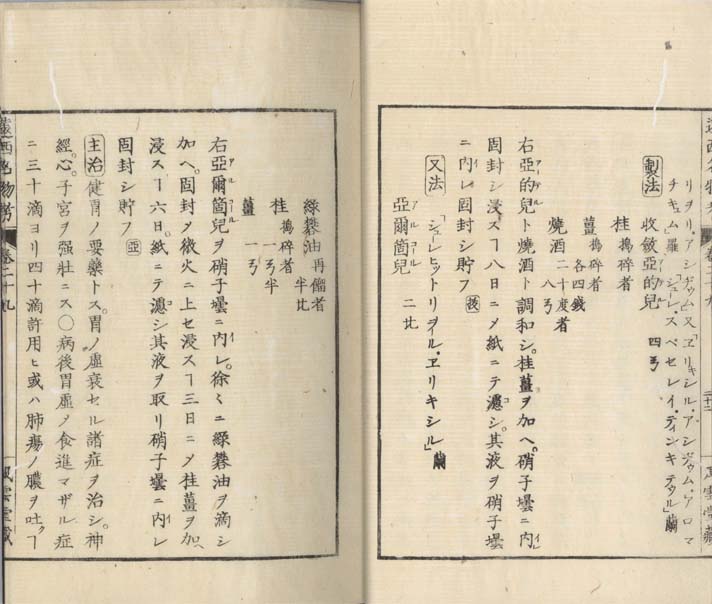 遠西名物考 卷二十九 三十二 風雲堂藏
リヲリ・アシヂウム又ヱリキシル・アシヂウム・アロマ
チキュム」羅「シュレ・スペセレイ・ティンキテウル」蘭
製法 收斂亞的兒 四ゥ
桂 搗碎者
薑 搗碎者 各四錢
燒酒 二十度者 八ゥ
右亞的兒ト燒酒ト調和シ。桂薑ヲ加ヘ。硝子壜ニ内レ
固封シ浸スヿ八日ニメ紙ニテ濾シ。其液ヲ硝子壜
ニ内レ固封シ貯フ
又法 「シュレヒットリヲイル・ヱリキシル」蘭
亞爾箇兒 二比
綠礬油 再餾者 半比
桂 搗碎者 一ゥ半
薑 一ゥ
右亞爾箇兒ヲ硝子壜ニ内レ。徐〻ニ綠礬油ヲ滴シ
加ヘ。固封メ微火ニ上セ浸スヿ三日ニメ桂薑ヲ加ヘ
浸スヿ六日。紙ニテ濾シ其液ヲ取リ硝子壜ニ内レ
固封シ貯フ 亞
主治 健胃ノ要藥トス。胃ノ虛衰セル諸症ヲ治シ。神
經。心。子宮ヲ强壯ニス〇病後胃虛メ食進マザル症
ニ三十滴ヨリ四十滴許用ヒ或ハ肺瘍ノ膿ヲ吐クヿ
遠西名物考 卷二十九 風雲堂藏